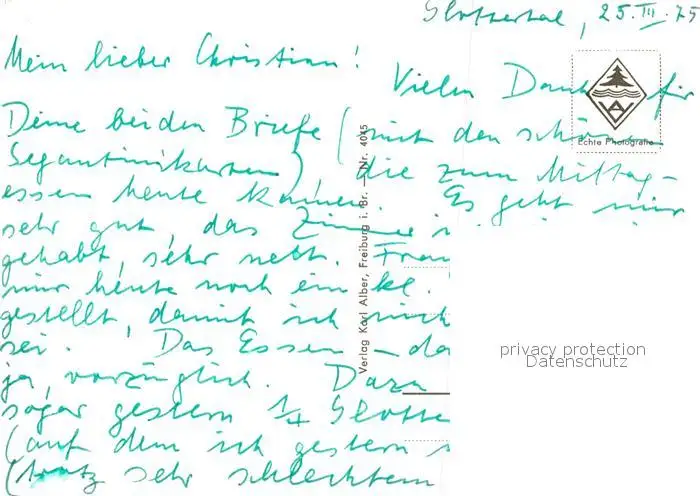 Glottertal, 25. III. 75
Mein lieber Christian!
Vielen Dank für
Deine beiden Briefe (mit den schönen
Segantinikarten) die zum Mittag-
essen heute kamen. Es geht mir
sehr gut, das Zimmer
gehabt, sehr nett. Frau
mir heute noch ein kl.
gestellt, damit ich nicht
sei. Das Essen – da
ja, vorzüglich. Dazu
sogar gestern 1/4 Glotte
(auf dem ich gestern
(trotz sehr schlechtem
Echte Photografie
Verlag Karl Alber, Freiburg i. Br. — Nr. 4045
privacy protection
Datenschutz